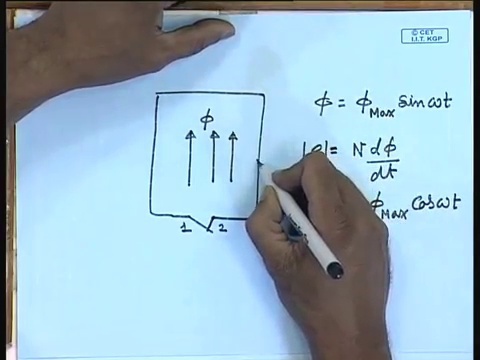 © CET
I.I.T. KGP
φ
φ = φ Max sin ωt
|e| = N dφ/dt
φ Max Cos ωt
1 2